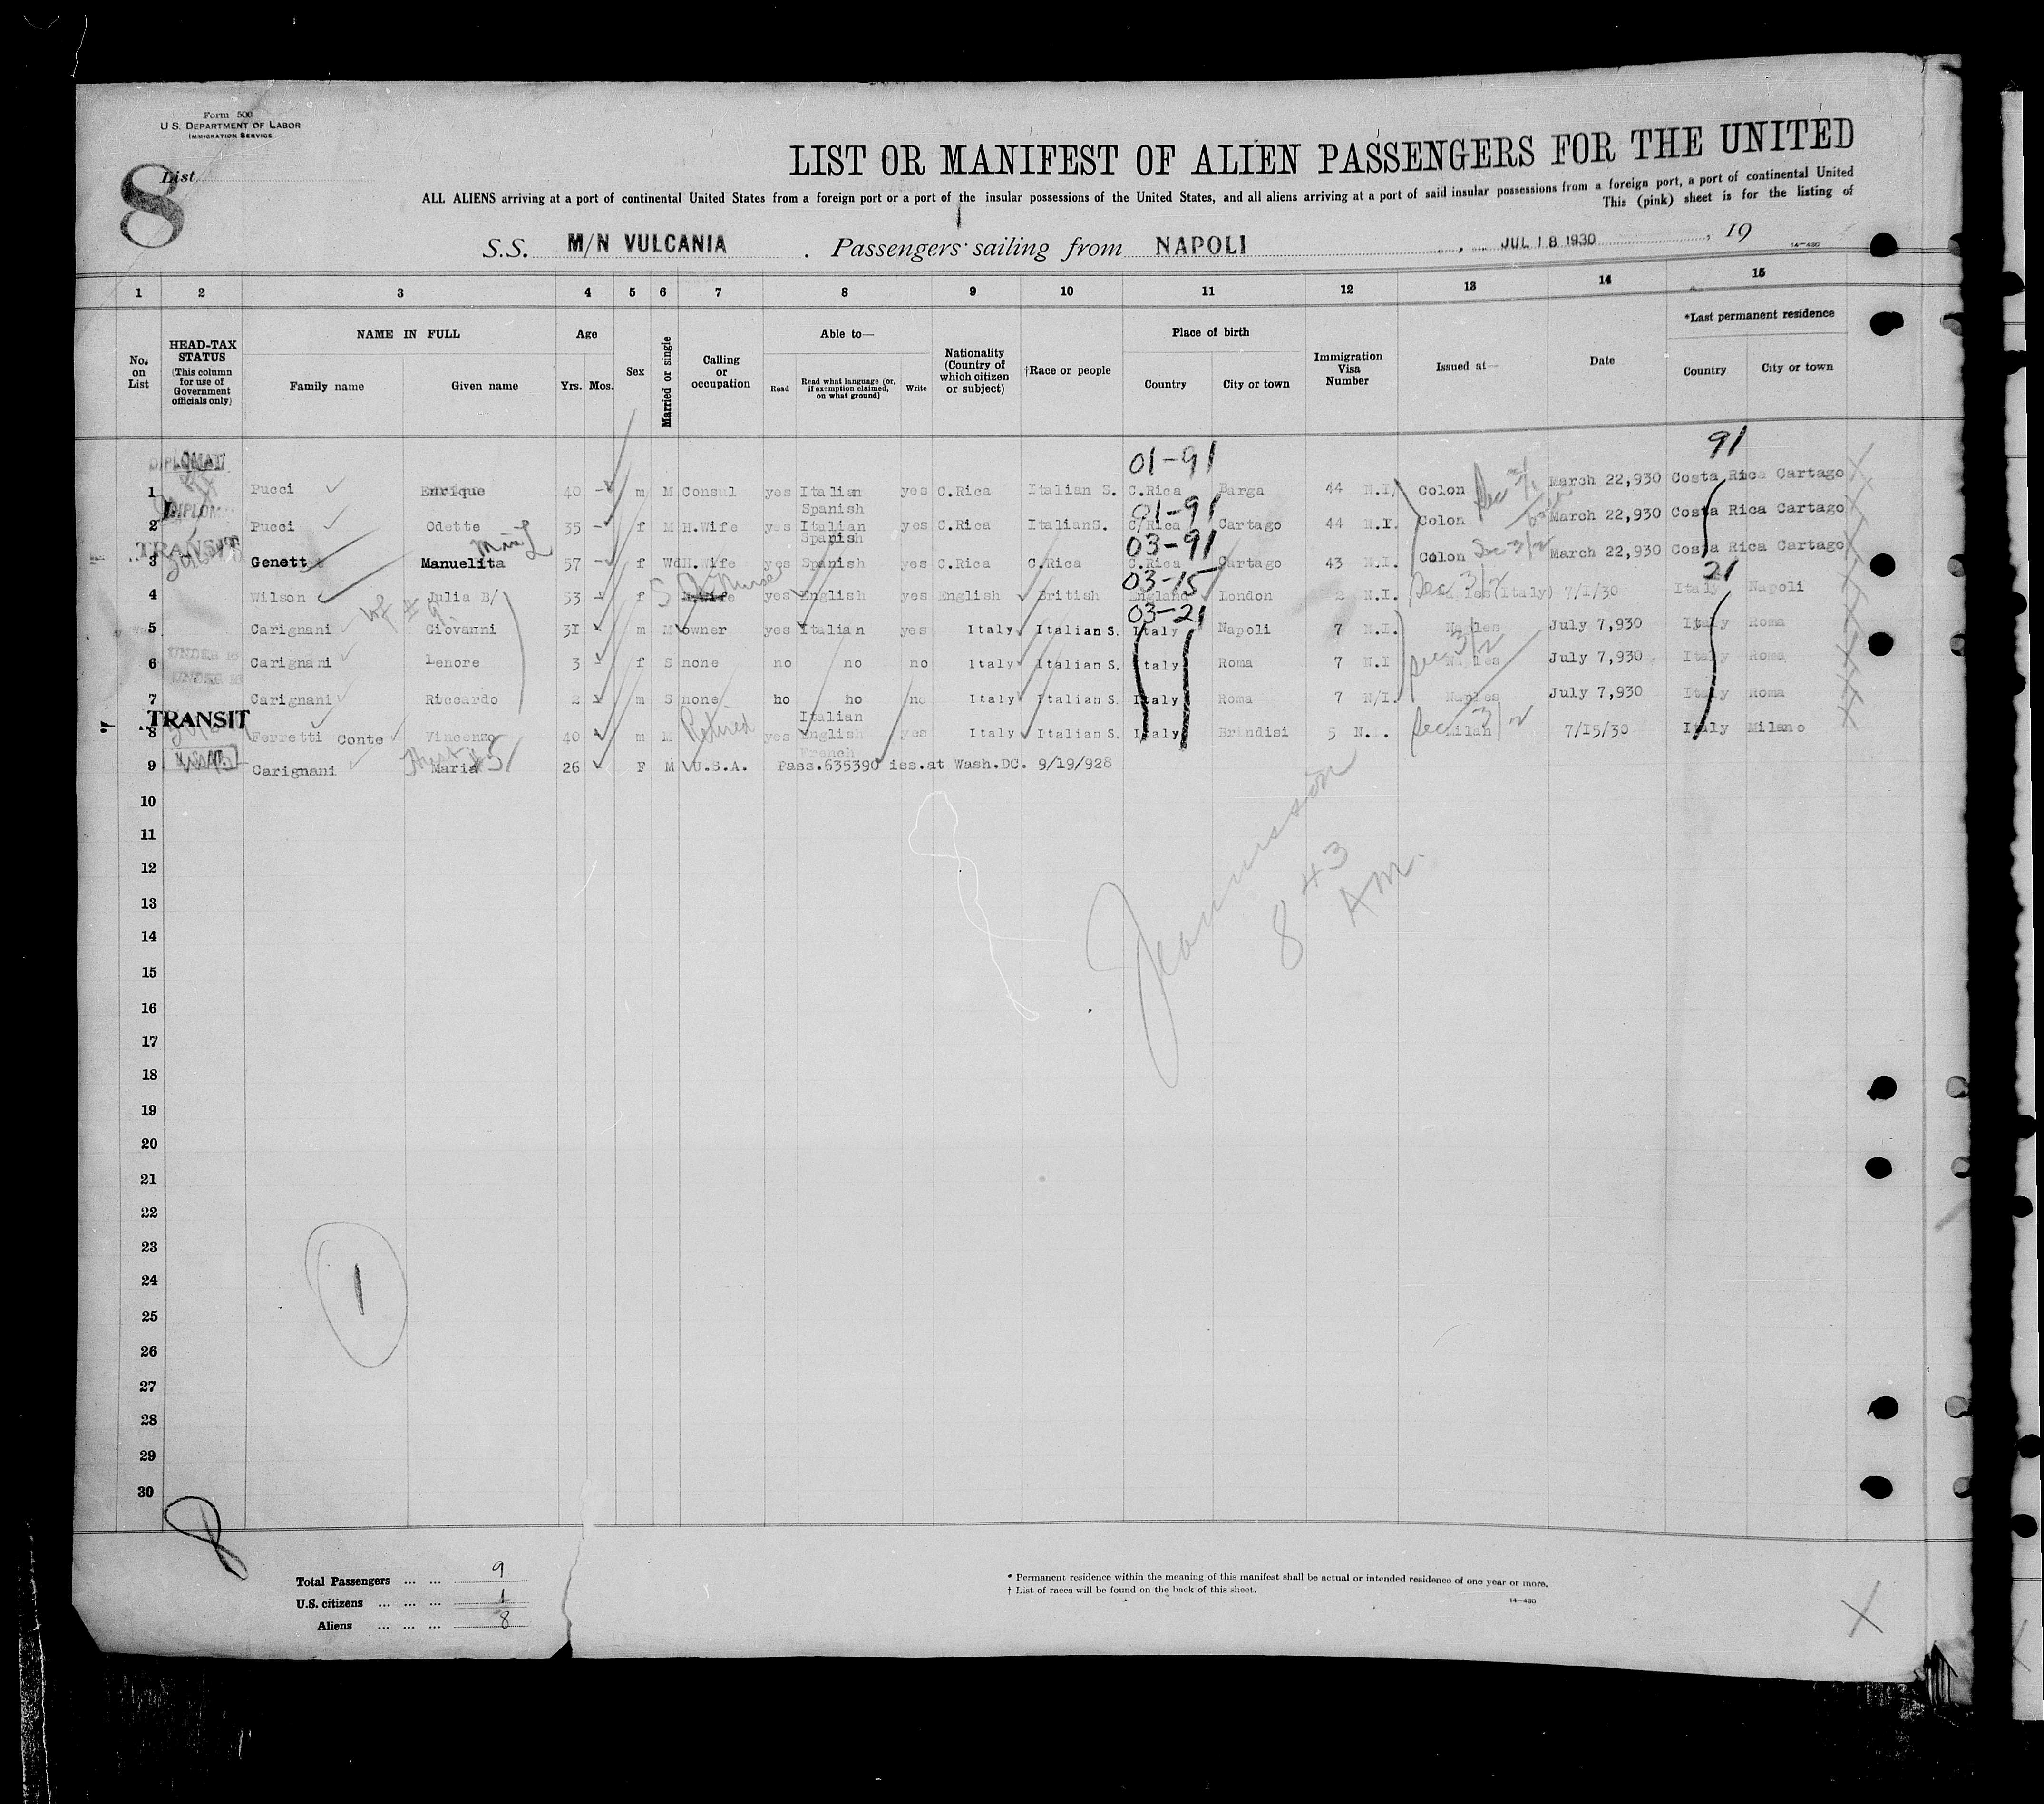 Form 500
U.S. DEPARTMENT OF LABOR
IMMIGRATION SERVICE
8
List
LIST OR MANIFEST OF ALIEN PASSENGERS FOR THE UNITED
ALL ALIENS arriving at a port of continental United States from a foreign port or a port of the insular possessions of the United States, and all aliens arriving at a port of said insular possessions from a foreign port, a port of continental United
This (pink) sheet is for the listing of
S.S. M/N VULCANIA . Passengers sailing from NAPOLI , JUL 18 1930 , 19
14-430
1 2 3 4 5 6 7 8 9 10 11 12 13 14 15
No. on List
HEAD-TAX STATUS (This column for use of Government officials only)
NAME IN FULL
Family name Given name
Age
Yrs. Mos.
Sex
Married or single
Calling or occupation
Able to—
Read Read what language (or, if exemption claimed, on what ground) Write
Nationality (Country of which citizen or subject)
†Race or people
Place of birth
Country City or town
Immigration Visa Number
Issued at—
Date
*Last permanent residence
Country City or town
01-91 91
DIPLOMAT
1 Pucci Enrique 40 - m M Consul yes Italian Spanish yes C.Rica Italian S. C.Rica Barga 44 N.I. Colon March 22,930 Costa Rica Cartago
DIPLOM 01-91
2 Pucci Odette 35 - f M H.Wife yes Italian Spanish yes C.Rica ItalianS. C/Rica Cartago 44 N.I. Colon March 22,930 Costa Rica Cartago
TRANSIT 03-91
3 Genett Manuelita 57 - f Wd H.Wife yes Spanish yes C.Rica C.Rica C.Rica Cartago 43 N.I. Colon Sec 3/2 March 22,930 Costa Rica Cartago
03-15 21
4 Wilson Julia B/ 53 - f S Nurse yes English yes English British England London 2 N.I. Sec 3/2 Naples(Italy) 7/1/30 Italy Napoli
wf # 9 03-21
5 Carignani Giovanni 31 m M owner yes Italian yes Italy Italian S. Italy Napoli 7 N.I. Naples July 7,930 Italy Roma
UNDER 16
6 Carignani Lenore 3 f S none no no no Italy Italian S. Italy Roma 7 N.I Sec 3/2 Naples July 7,930 Italy Roma
UNDER 16
7 Carignani Riccardo 2 m S none ho ho no Italy Italian S. Italy Roma 7 N/I. Naples July 7,930 Italy Roma
TRANSIT
8 Ferretti Conte Vincenzo 40 m M Retired yes Italian English French yes Italy Italian S. Italy Brindisi 5 N.I. Sec 3/2 Milan 7/15/30 Italy Milano
9 Carignani Maria 26 F M U.S.A. Pass.635390 iss.at Wash.DC. 9/19/928
10
11
12
8 43 AM.
13
14
15
16
17
18
19
20
21
22
23
24
1
25
26
27
28
29
30
Total Passengers ... ... 9
U.S. citizens ... ... ... 1
Aliens ... ... ... 8
* Permanent residence within the meaning of this manifest shall be actual or intended residence of one year or more.
† List of races will be found on the back of this sheet.
14-430